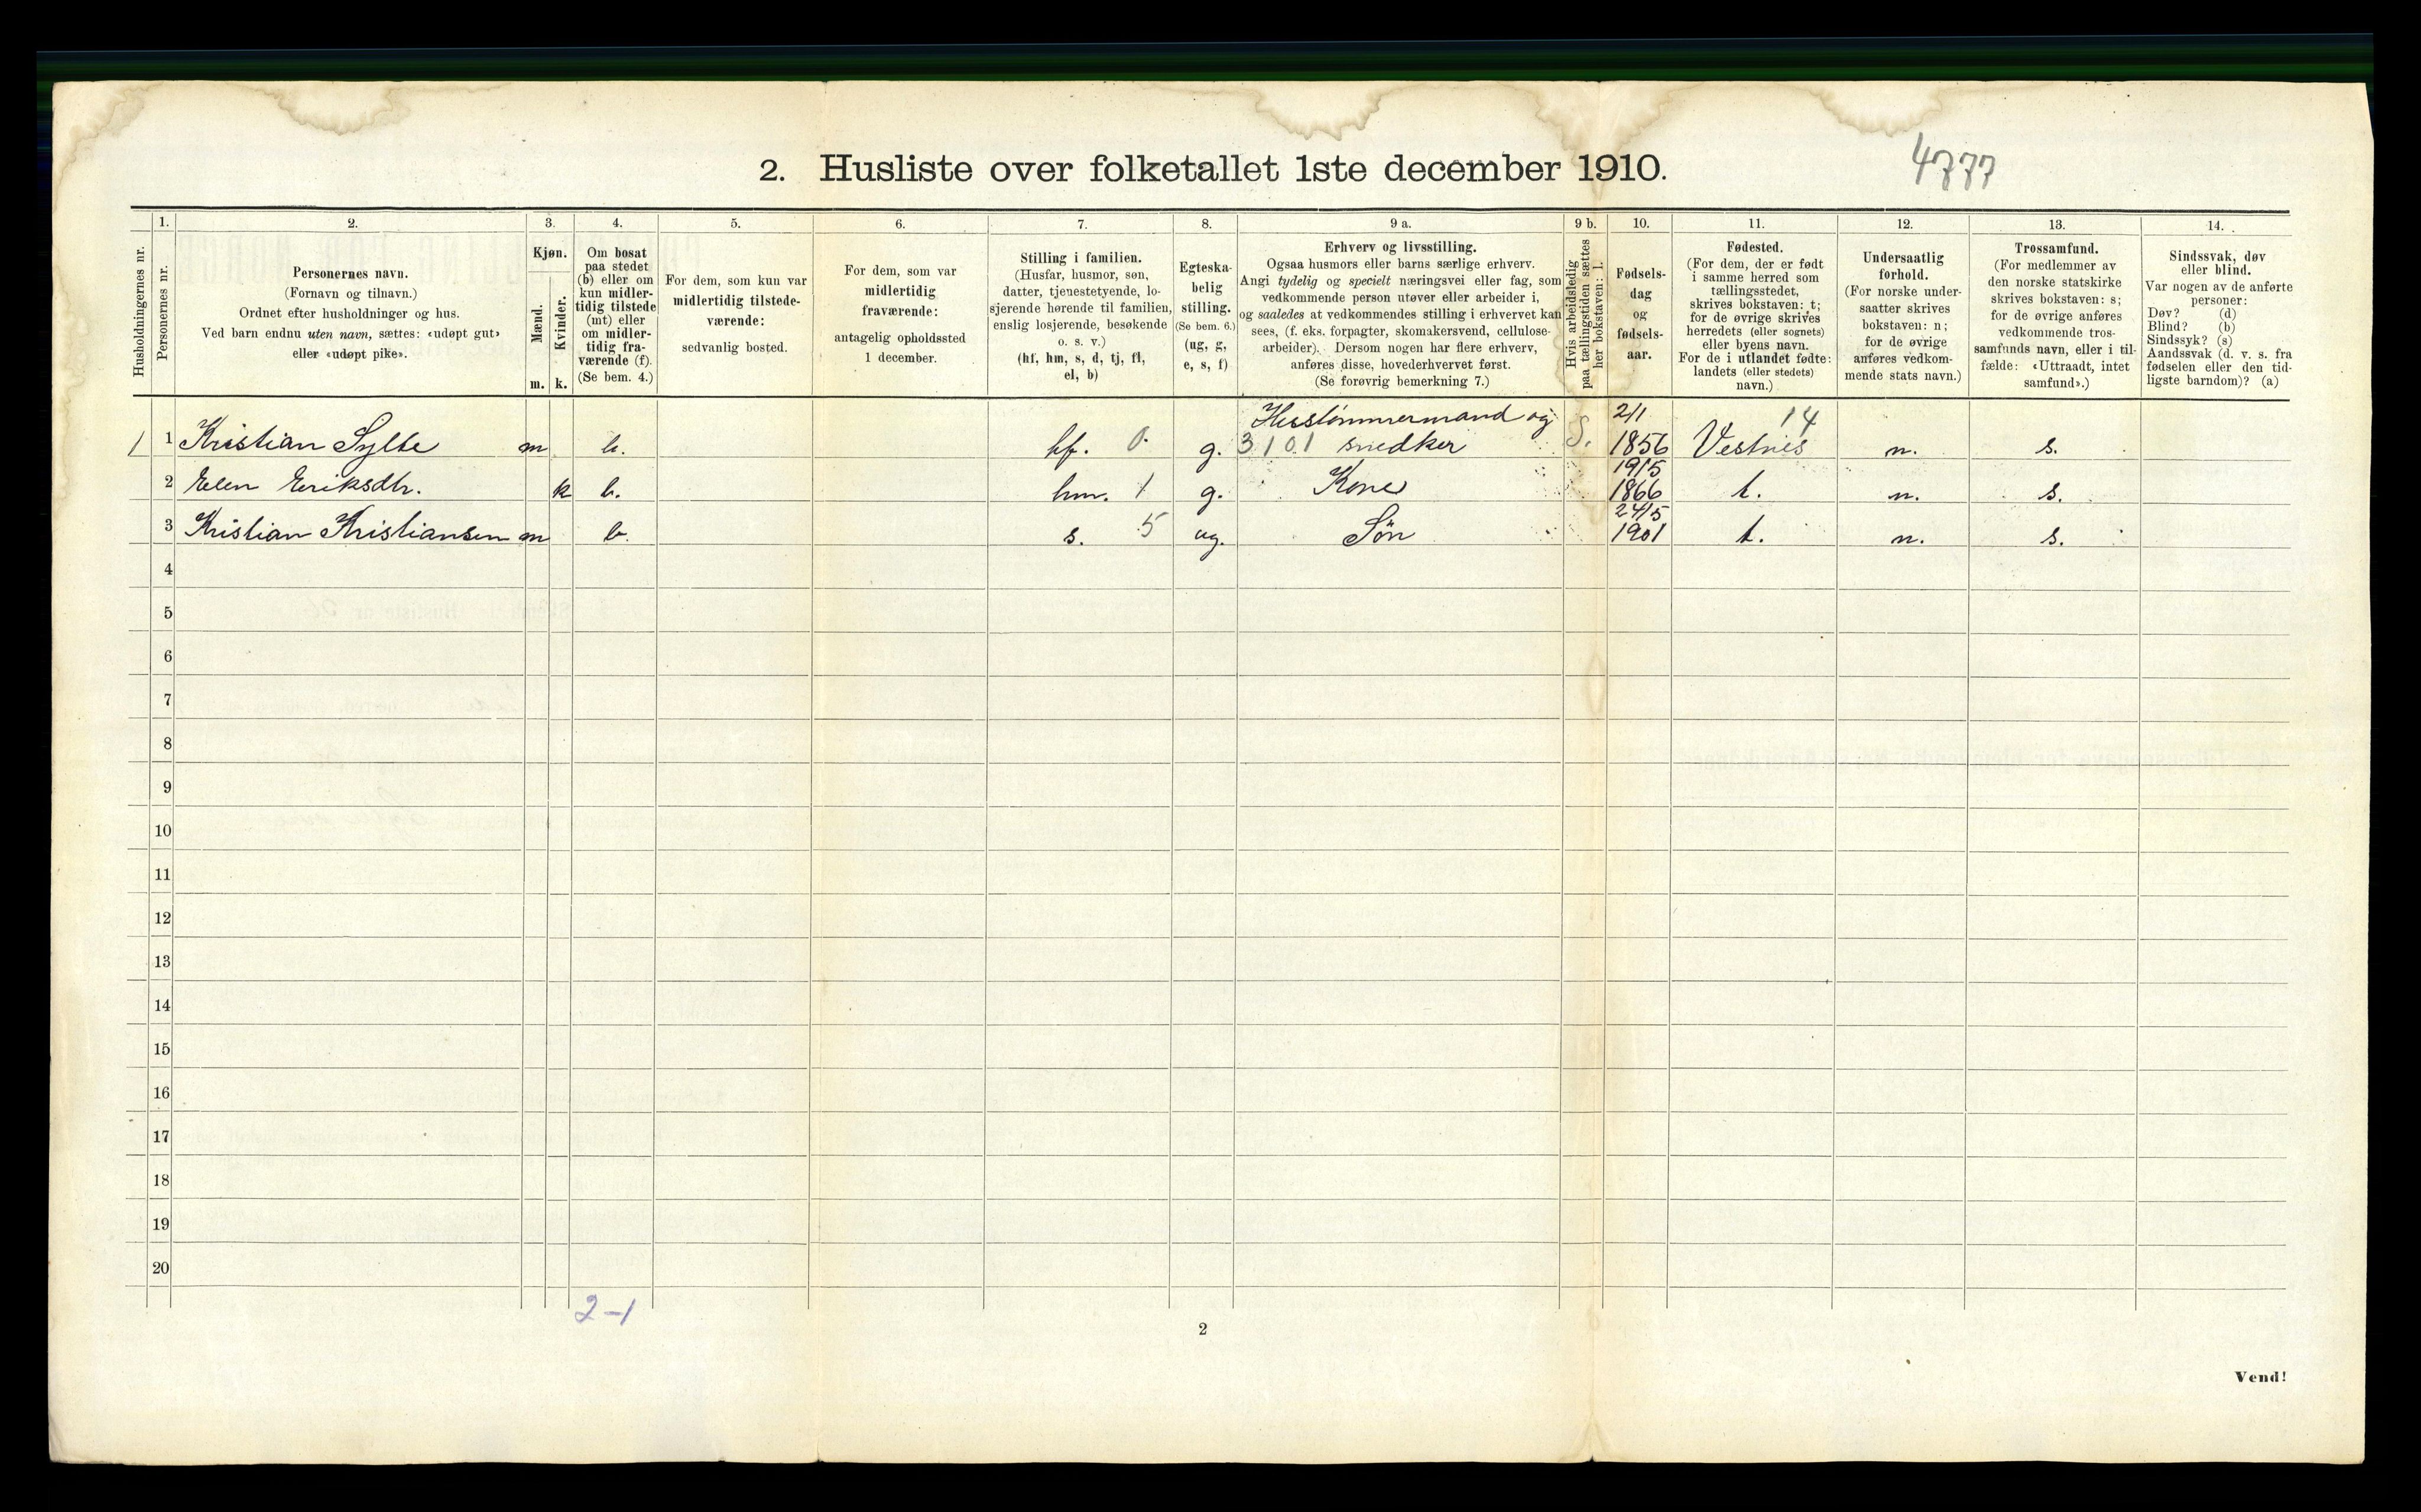 4777
2. Husliste over folketallet 1ste december 1910.
Husholdningernes nr.
1.
Personernes nr.
2.
Personernes navn.
(Fornavn og tilnavn.)
Ordnet efter husholdninger og hus.
Ved barn endnu uten navn, sættes: «udøpt gut»
eller «udøpt pike».
3.
Kjøn.
Mænd.
Kvinder.
m. k.
4.
Om bosat
paa stedet
(b) eller om
kun midler-
tidig tilstede
(mt) eller
om midler-
tidig fra-
værende (f).
(Se bem. 4.)
5.
For dem, som kun var
midlertidig tilstede-
værende:
sedvanlig bosted.
6.
For dem, som var
midlertidig
fraværende:
antagelig opholdssted
1 december.
7.
Stilling i familien.
(Husfar, husmor, søn,
datter, tjenestetyende, lo-
sjerende hørende til familien,
enslig losjerende, besøkende
o. s. v.)
(hf, hm, s, d, tj, fl,
el, b)
8.
Egteska-
belig
stilling.
(Se bem. 6.)
(ug, g,
e, s, f)
9 a.
Erhverv og livsstilling.
Ogsaa husmors eller barns særlige erhverv.
Angi tydelig og specielt næringsvei eller fag, som
vedkommende person utøver eller arbeider i,
og saaledes at vedkommendes stilling i erhvervet kan
sees, (f. eks. forpagter, skomakersvend, cellulose-
arbeider). Dersom nogen har flere erhverv,
anføres disse, hovederhvervet først.
(Se forøvrig bemerkning 7.)
9 b.
Hvis arbeidsledig
paa tællingstiden sættes
her bokstaven: l.
10.
Fødsels-
dag
og
fødsels-
aar.
11.
Fødested.
(For dem, der er født
i samme herred som
tællingsstedet,
skrives bokstaven: t;
for de øvrige skrives
herredets (eller sognets)
eller byens navn.
For de i utlandet fødte:
landets (eller stedets)
navn.)
12.
Undersaatlig
forhold.
(For norske under-
saatter skrives
bokstaven: n;
for de øvrige
anføres vedkom-
mende stats navn.)
13.
Trossamfund.
(For medlemmer av
den norske statskirke
skrives bokstaven: s;
for de øvrige anføres
vedkommende tros-
samfunds navn, eller i til-
fælde: «Uttraadt, intet
samfund».)
14.
Sindssvak, døv
eller blind.
Var nogen av de anførte
personer:
Døv? (d)
Blind? (b)
Sindssyk? (s)
Aandssvak (d. v. s. fra
fødselen eller den tid-
ligste barndom)? (a)
Hustømmermand og 2/1 14
1 1 Kristian Sylte m b. hf. 0. g. 3101 snedker S. 1856 Vestnes n. s.
19/5
2 Elen Eriksdtr. k b. hm. 1 g. Kone 1866 t. n. s.
24/5
3 Kristian Kristiansen m b. s. 5 ug. Søn 1901 t. n. s.
4
5
6
7
8
9
10
11
12
13
14
15
16
17
18
19
20
2-1
2
Vend!